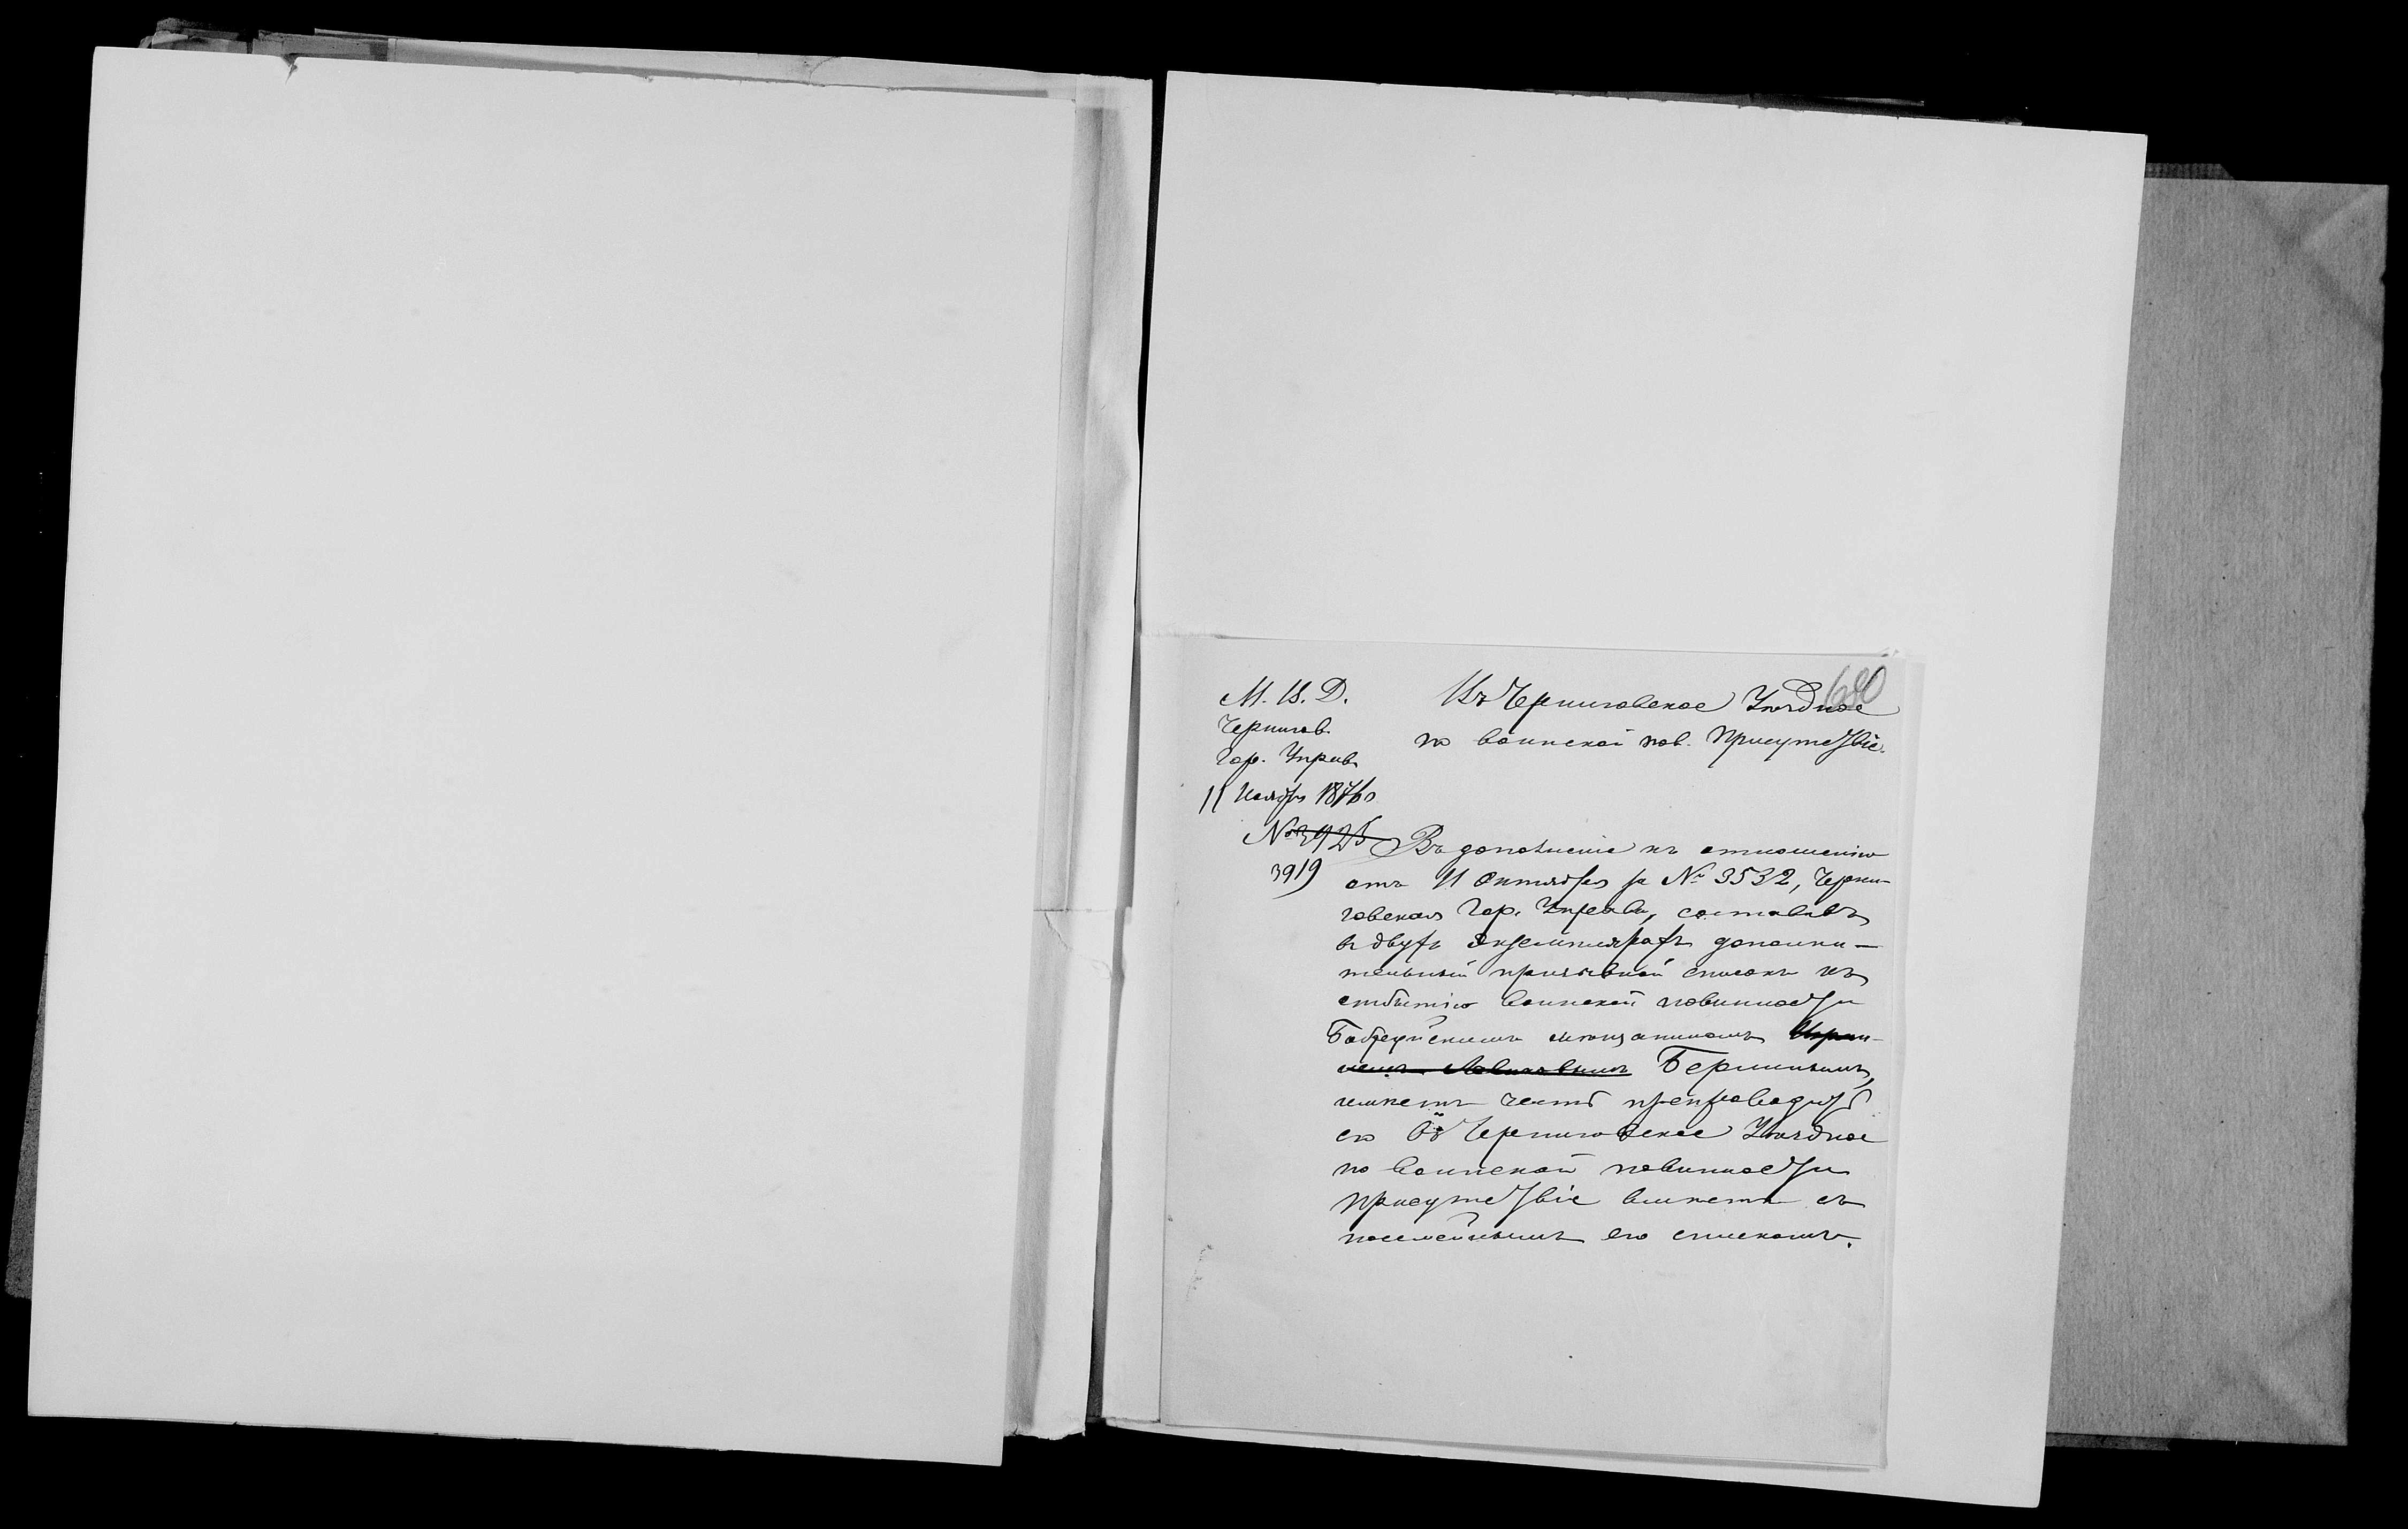 680
М. В. Д.
Чернигов.
Гор. Управ.
11 Ноября 1876 г.
№ 3925
3919
Въ Черниговское Уѣздное
по воинской пов. Присутствіе.
Въ дополненіе къ отношенію
отъ 11 Октября за № 3532, Черни-
говская Гор. Управа, составивъ
въ двухъ экземплярахъ дополни-
тельный призывной списокъ къ
отбытію воинской повинности
Бобруйскимъ мѣщаниномъ
Берлинымъ,
имѣетъ честь препроводить
его въ Черниговское Уѣздное
по воинской повинности
присутствіе вмѣстѣ съ
посемейнымъ его спискомъ.